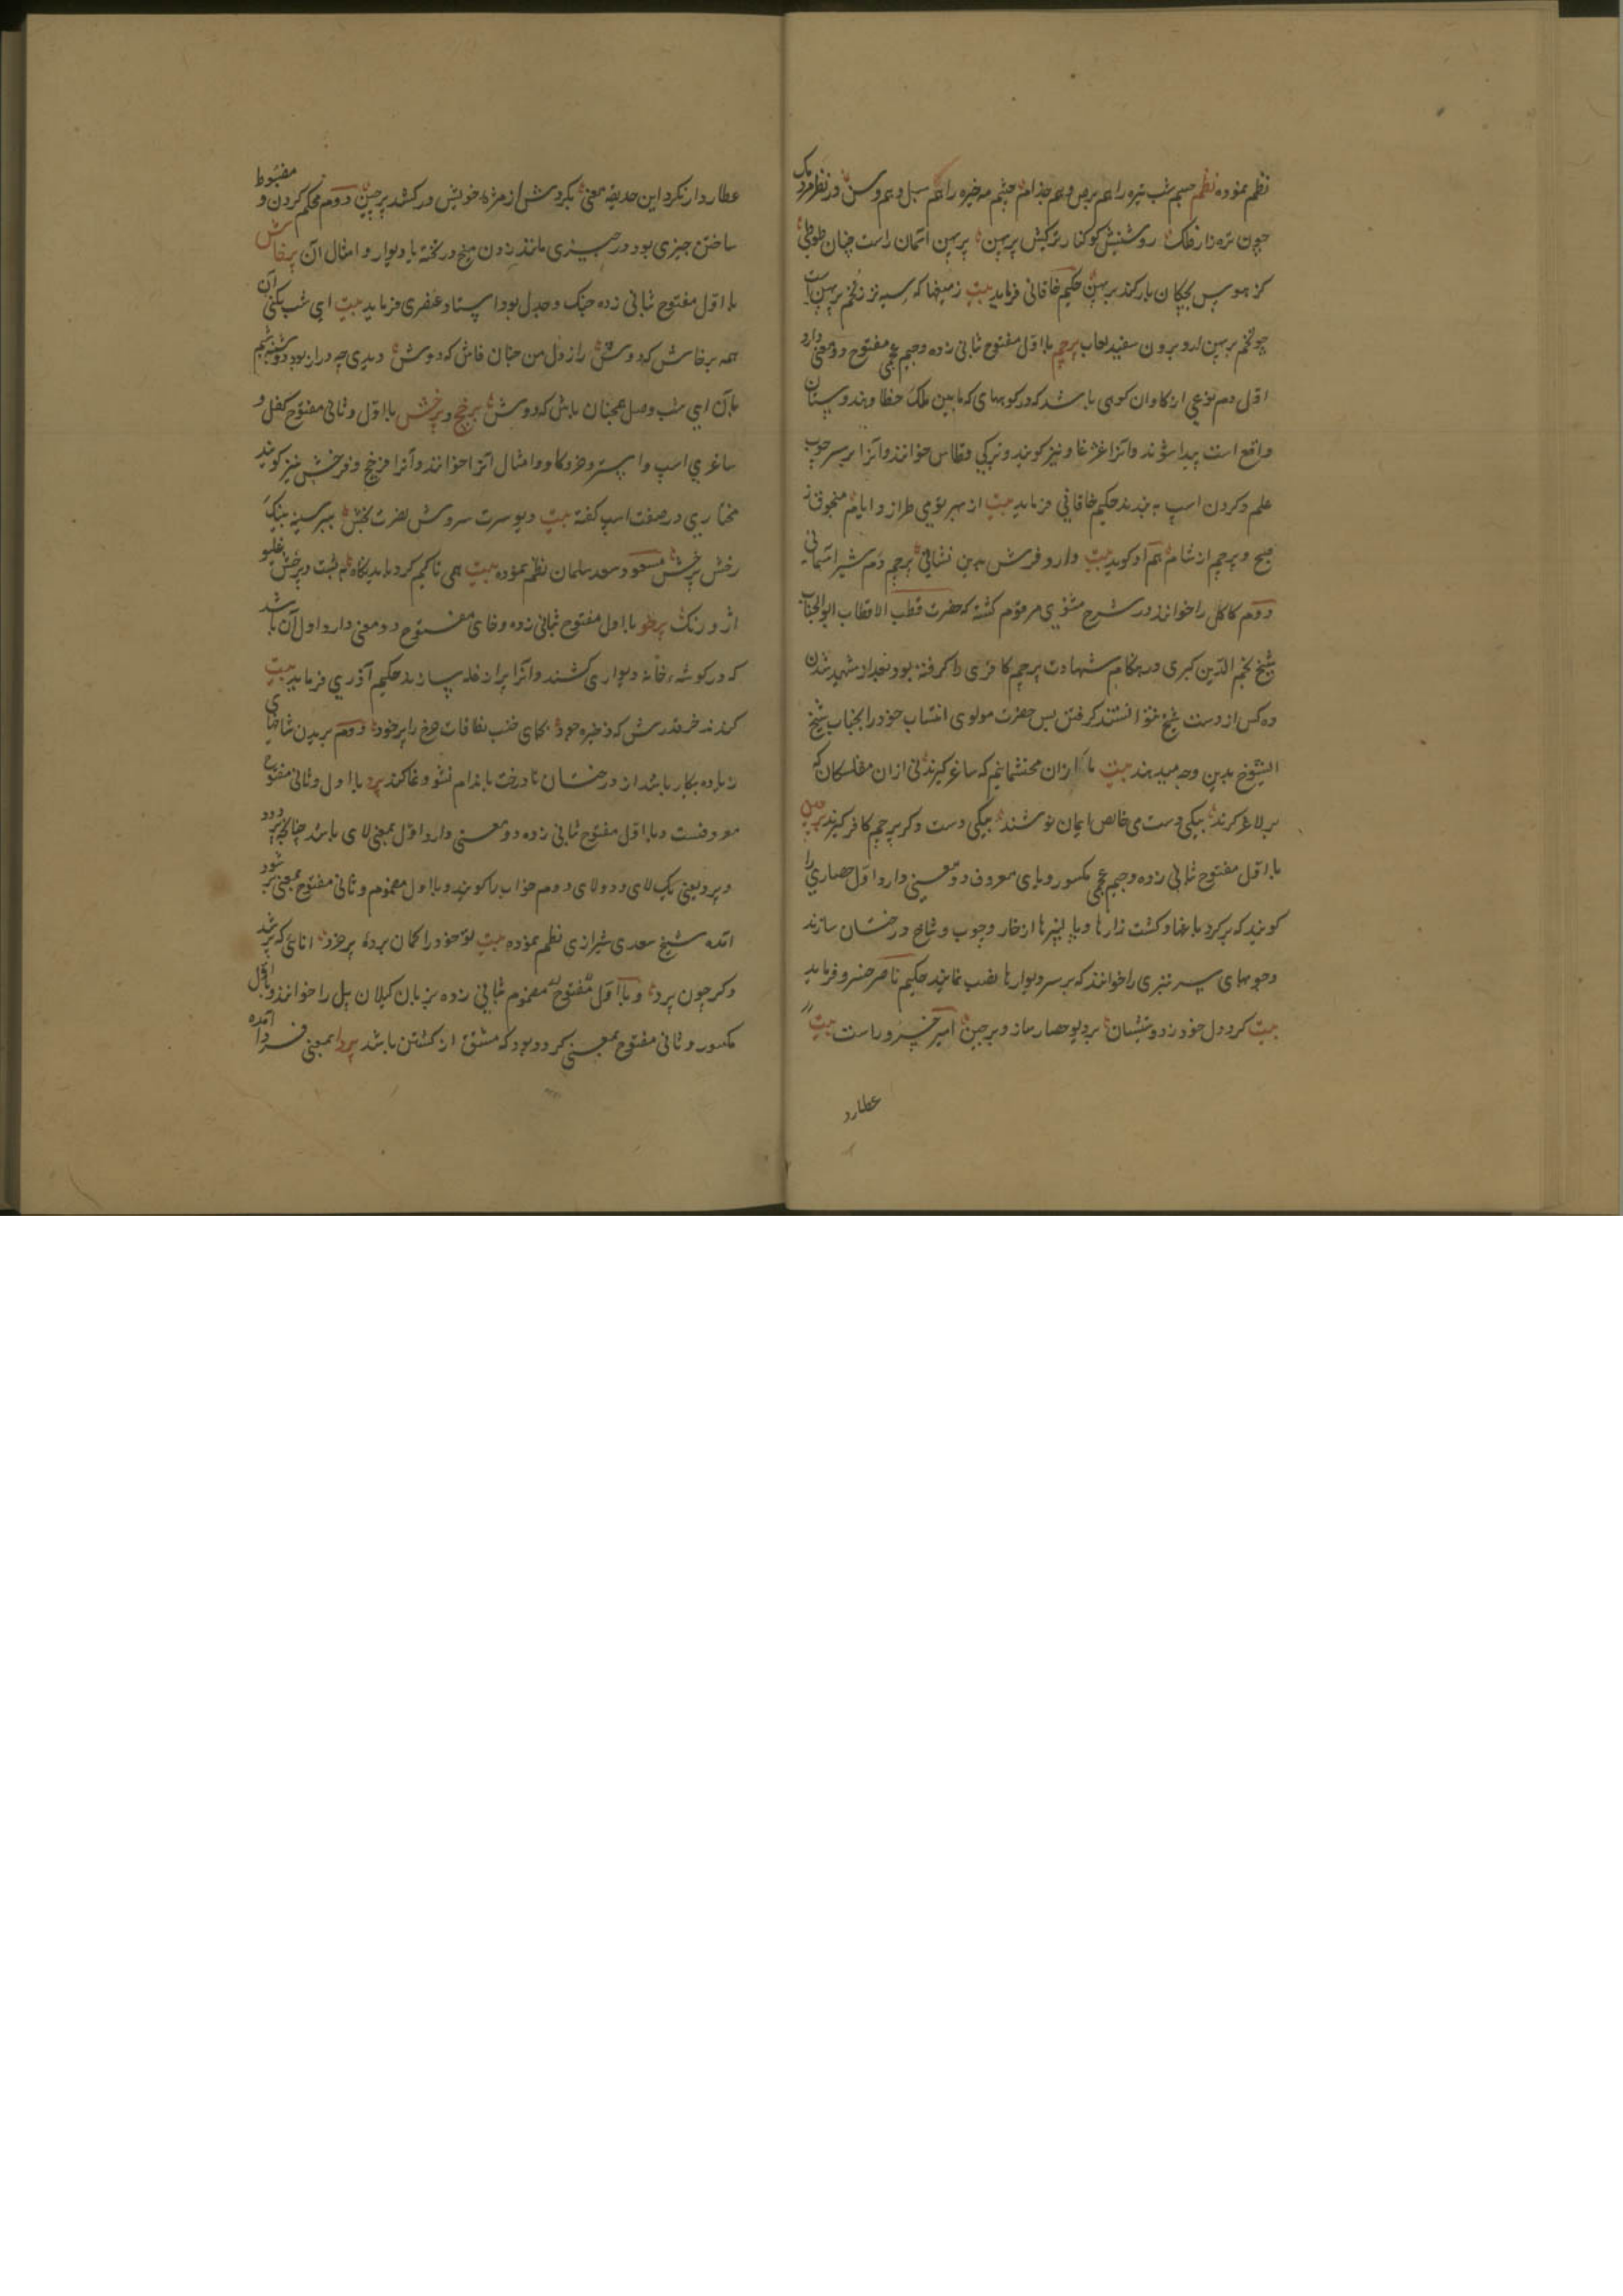 نظم نموده نظم جسم شب تیره را هم برص و هم جذام چشم مه خیره را هم سبل و هم وسن در نظر مردمک
چون تره زار فلک روشنیش کوکنار ترکیش پرپهن پرپهن آسمان راست چنان طوطی
کز هوس بچکان بار کند پرپهن حکیم خاقانی فرماید بیت زمیغها که سیه تر ز تخم پرپهن است
چو تخم پرپهن ارد برون سفید لعاب پرچم با اول مفتوح ثانی زده وجیم عجمی مفتوح دو معنی دارد
اول دم نوعی از کاوان کوهی باشد که در کوههای که مابین ملک خطا و هندوستان
واقع است پیدا شوند وآنرا غژغا و نیز کویند وبترکی قطاس خوانند وآنرا بر سر چوب
علم وکردن اسپ به بندند حکیم خاقانی فرماید بیت از مهر نوبی طراز و ایام منجوق ز
صبح و پرچم از شام هم او کوید بیت دارد فرش بدین نشانی پرچم ز دم شیر آسمانی
دوم کاکل را خوانند در شرح مثنوی مرقوم کشته که حضرت قطب الاقطاب ابوالجناب
شیخ نجم الدین کبری در هنکام شهادت پرچم کافری را کرفته بود بعد از شهید شدن
ده کس از دست شیخ نتوانستند کرفتن پس حضرت مولوی انتساب خود را بجناب شیخ
الشیوخ بدین وجه میدهند بیت ما از آن محتشمانیم که ساغر کیرند نی ازان مفلسکان که
بز لاغر کیرند بیکی دست می خالص ایمان نوشند بیکی دست دکر پرچم کافر کیرند پرچین
با اول مفتوح ثانی زده وجیم عجمی مکسور ویای معروف دو معنی دارد اول حصاری را
کویند که بر کرد باغها وکشت زارها وپالیزها از خار وچوب وشاخ درختان سازند
وچوبهای سر تیزی را خوانند که بر سر دیوارها نصب نمایند حکیم ناصر خسرو فرماید
بیت کرد دل خود ز دوستیشان بر دیو حصار ساز و پرچین امیر خسرو راست بیت
عطارد
عطارد ار نکرد این حدیقه معنی بکردش از مژه خویش در کشد پرچین دوم محکم کردن و مضبوط
ساختن چیزی بود در چیزی مانند زدن میخ در تخته یا دیوار و امثال آن پرخاش
با اول مفتوح ثانی زده جنک وجدل بود استاد عنصری فرماید بیت ای شب نکنی آن
همه پرخاش که دوش راز دل من چنان فاش که دوش دیدی چه دراز بود دوشینه شبم
هان ای شب وصل همچنان باش که دوش پرخچ و پرخش با اول وثانی مفتوح کفل و
ساغری اسپ واستر وخر وکاو وامثال آنرا خوانند وآنرا فرخچ وفرخش نیز کویند
مختاری در صفت اسپ کفته بیت دیو سرت سروش نصرت بخش ببر سینه پلنک
رخش پرخش مسعود سعد سلمان نظم نموده بیت همی تا کیم کرد باید نکاه به پشت وپرخش
اژدر رنک پرخو با اول مفتوح ثانی زده وخای مفتوح دو معنی دارد اول آن باشد
که در کوشه خانه دیواری کشند وآنرا پر از غله سازند حکیم آذری فرماید بیت
کردند خر قدرش که ذخیره جود بجای خنب نه طاقات چرخ را پرخو دوم بریدن شاخهای
زیاده بکار باشد از درختان تا درخت باندام نشو ونما کند پرد با اول وثانی مفتوح
معروفست وبا اول مفتوح ثانی زده دو معنی دارد اول بمعنی لای باشد چنانکه پرد
وپرد یعنی یک لای ودو لای دوم خواب را کویند وبا اول مضموم وثانی مفتوح بمعنی پر شود
آمده شیخ سعدی شیرازی نظم نموده بیت تو خود را کمان برده پر خرد انائی که پر شد
دکر چون پرد وبا اول مفتوح مضموم ثانی زده بزبان کیلان پل را خوانند وبا اول
مکسور وثانی مفتوح بمعنی کردد بود که مشتق از کشتن باشد پردا بمعنی فردا آمده